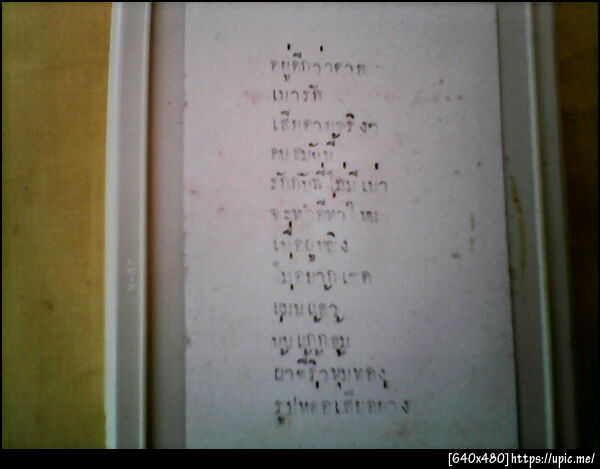 อยู่ดีกว่าตาย
เมารัก
เสียดายจริงๆ
คนสมัยนี้
รักกันที่ไม่มีเมา
จะทำอีท่าไหน
เพื่อผู้หญิง
ไม่อยาก
แมนแล้ว
ผ้าขี้ริ้วหุ้มทอง
รูปหล่อเสียอย่าง
[640x480]https://upic.me/